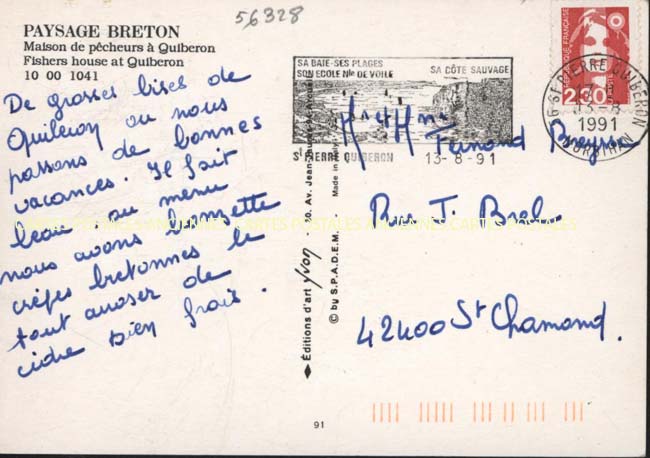 56328
PAYSAGE BRETON
Maison de pêcheurs à Quiberon
Fishers house at Quiberon
10 00 1041
De grosses bises de
Quiberon où nous
passons de bonnes
vacances. Il fait
beau au menu
nous avons
crêpes bretonnes le
tout arroser de
cidre bien frais.
SA BAIE-SES PLAGES
SON ECOLE Nle DE VOILE
SA CÔTE SAUVAGE
ST PIERRE QUIBERON
13-8-91
56 ST PIERRE QUIBERON
13-8
1991
MORBIHAN
2,30
Fernand
Rue J. Brel
42400 St Chamond.
Editions d'art yvon
Made in
© by S.P.A.D.E.M.
91
CARTES POSTALES ANCIENNES